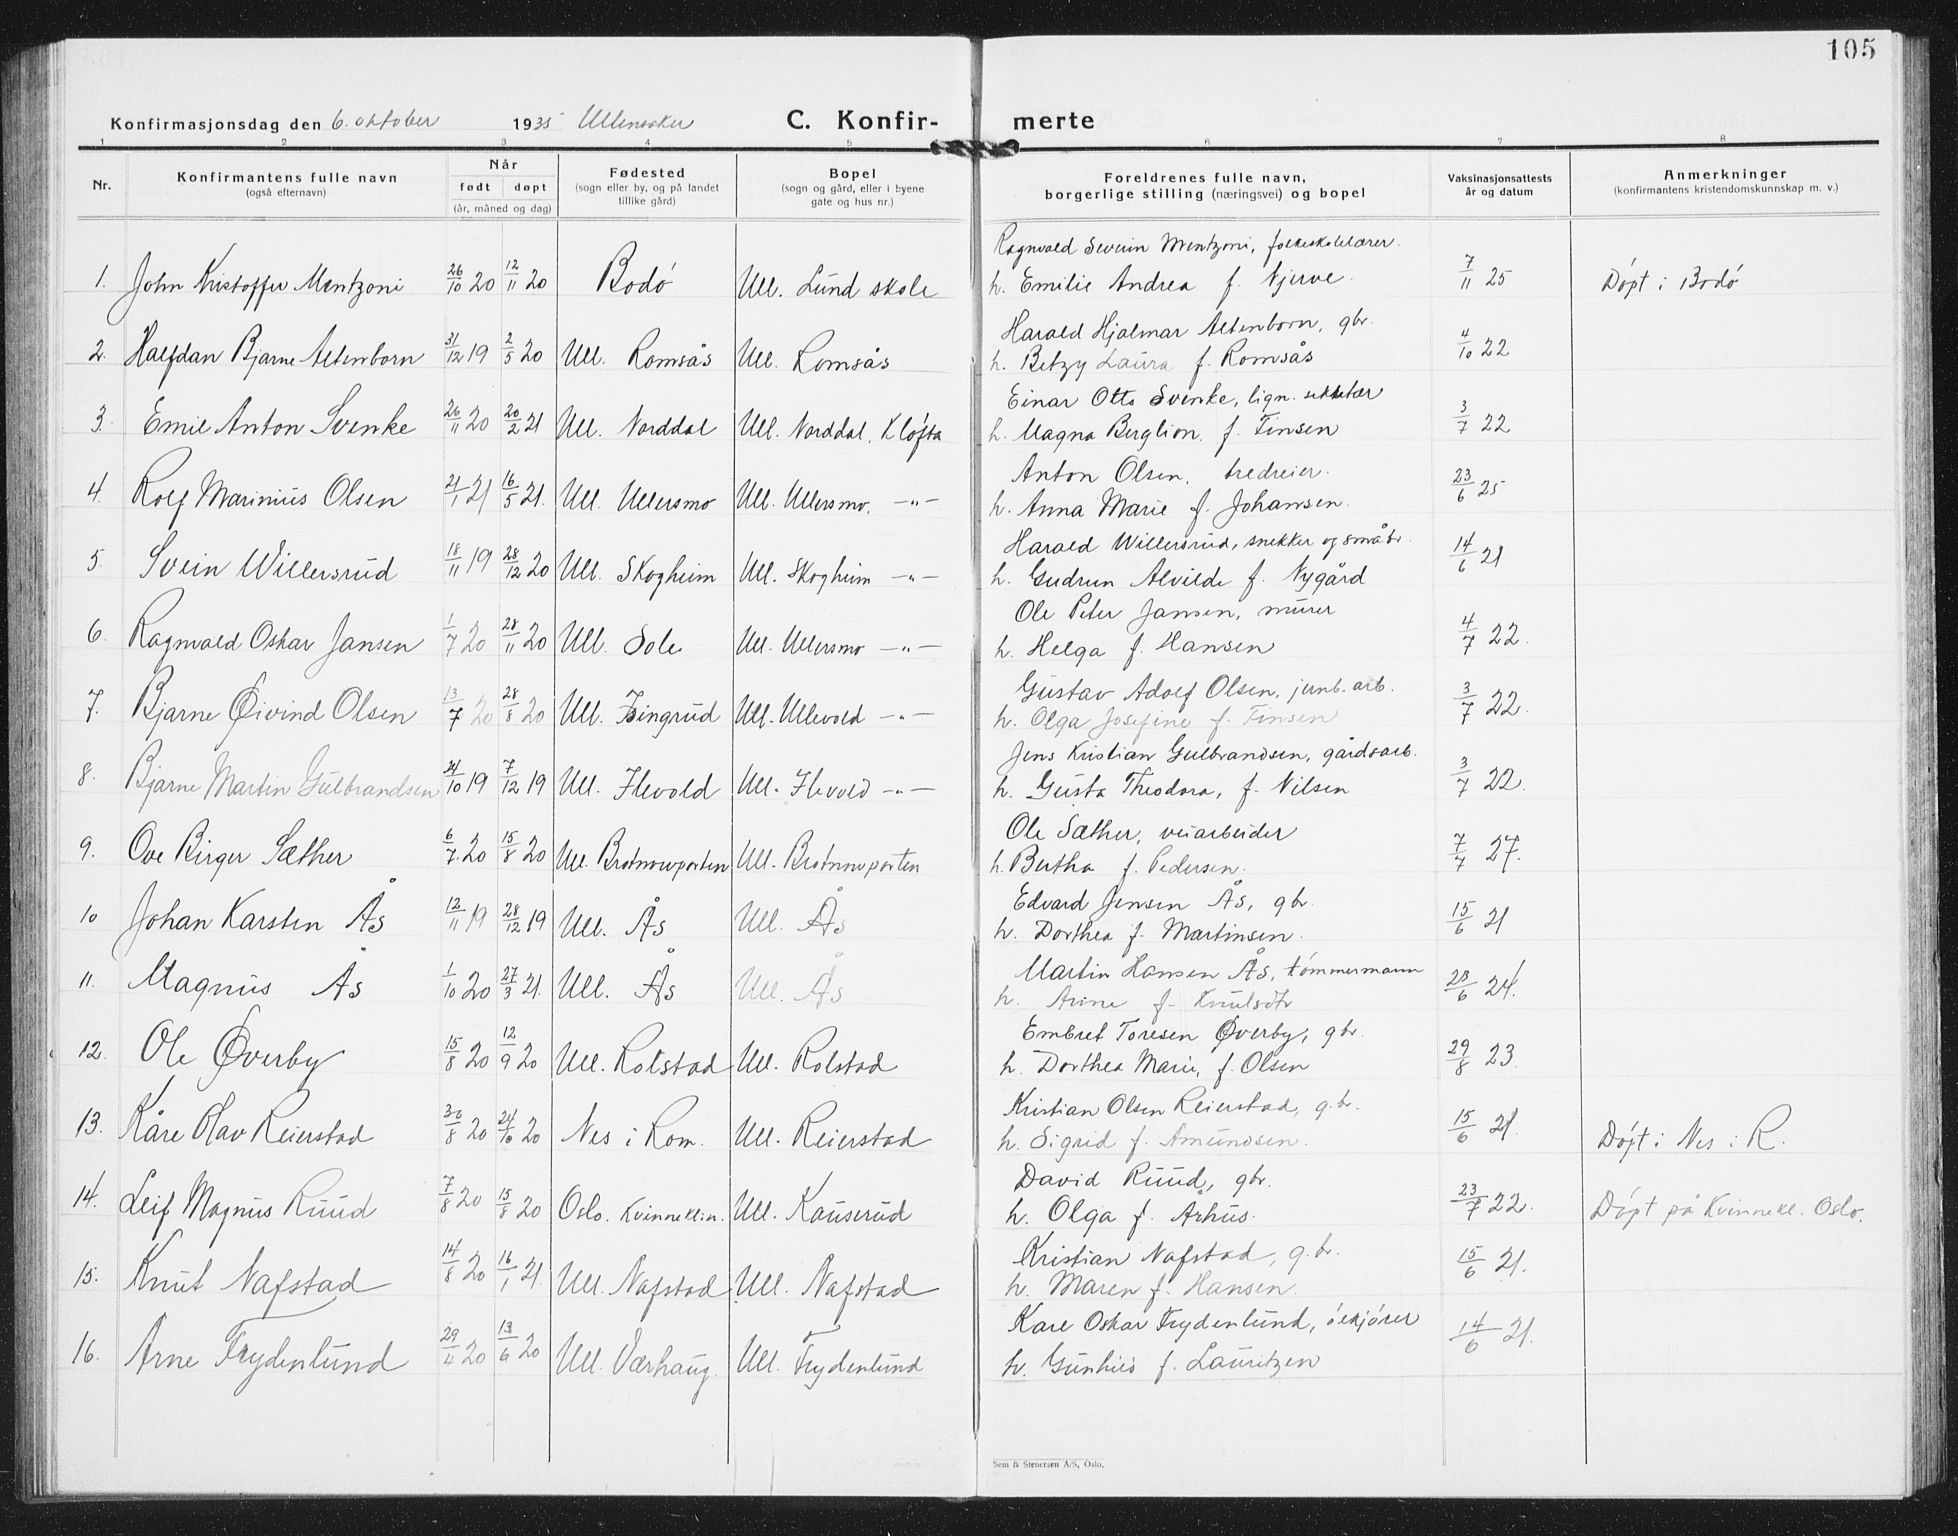 105
Konfirmasjonsdag den 6. oktober 1935 Ullensaker C. Konfir- merte
1 2 3 4 5 6 7 8
Nr. Konfirmantens fulle navn (også efternavn) Når født døpt (år, måned og dag) Fødested (sogn eller by, og på landet tillike gård) Bopel (sogn og gård, eller i byene gate og hus nr.) Foreldrenes fulle navn, borgerlige stilling (næringsvei) og bopel Vaksinasjonsattests år og datum Anmerkninger (konfirmantens kristendomskunnskap m. v.)
Ragnvald Severin Mentzoni, folkeskolelærer.
1. John Kristoffer Mentzoni 26/10 20 12/11 20 Bodó Ull. Lund skole h. Emilie Andrea f. Njerve. 7/11 25 Dópt i Bodó
Harald Hjalmar Altenborn, gbr.
2. Halfdan Bjarne Altenborn 31/12 19 2/5 20 Ull. Romsås Ull. Romsås h. Betzy Laura f. Romsås 4/10 22
Einar Otto Svenke, lign. sekretær
3. Emil Anton Svenke 26/11 20 20/2 21 Ull. Norddal Ull. Norddal, Klófta h. Magna Berglion, f. Finsen 3/7 22
Anton Olsen, tredreier.
4. Rolf Marinius Olsen 21/1 21 16/5 21. Ull. Ullersmo Ull. Ullersmo. —"— h. Anna Marie f. Johansen. 23/6 25
Harald Willersrud, snekker og småbr.
5. Svein Willersrud 18/11 19 28/12 20 Ull. Skogheim Ull. Skogheim —"— h. Gudrun Alvilde f. Nygård 14/6 21
Ole Peter Jansen, murer
6. Ragnvald Oskar Jansen 1/7 20 28/11 20 Ull. Sole Ull. Ullersmo —"— h. Helga f. Hansen 4/7 22.
Gustav Adolf Olsen, jernb. arb.
7. Bjarne Øivind Olsen 13/7 20 28/8 20 Ull. Ull. Ullevold —"— h. Olga Josefine f. Finsen 3/7 22.
Jens Kristian Gulbrandsen, gårdsarb.
8. Bjarne Martin Gulbrandsen 24/10 19 7/12 19 Ull. Ilevold Ull. Ilevold —"— h. Gusta Theodora, f. Nilsen 3/7 22.
Ole Sæther, veiarbeider
9. Ove Birger Sæther 6/7 20 15/8 20 Ull. Brotnowporten Ull. Brotnowporten h. Bertha f. Pedersen. 7/7 27.
Edvard Jensen Ås, gbr.
10 Johan Karsten Ås 12/11 19 28/12 19 Ull. Ås Ull. Ås h. Dorthea f. Martinsen. 15/6 21
Martin Hansen Ås, tómmermann
11. Magnus Ås 1/10 20 27/3 21. Ull. Ås Ull. Ås h. f. Knutsdtr 23/6 24.
Embret Toresen Øverby, gbr.
12. Ole Øverby 15/8 20 12/9 20 Ull. Rolstad Ull. Rolstad h. Dorthea Marie, f. Olsen 29/8 23.
Kristian Olsen Reierstad, g.br.
13. Kåre Olav Reierstad 30/8 20 24/10 20 Nes i Rom. Ull. Reierstad h. Sigrid f. Amundsen. 15/6 21. Dópt i Nes i R.
David Ruud, gbr.
14. Leif Magnus Ruud 7/8 20 15/8 20 Oslo. Kvinneklin. Ull. Kauserud h. Olga f. Århus. 23/7 22. Dópt på Kvinnekl. Oslo.
Kristian Nafstad, g.br.
15. Knut Nafstad 14/8 20 16/1 21. Ull. Nafstad Ull. Nafstad h. Maren f. Hansen. 15/6 21.
Kare Oskar Frydenlund, ólkjórer
16. Arne Frydenlund 29/4 20 13/6 20 Ull. Værhaug. Ull. Frydenlund h. Gunhild f. Lauritzen 14/6 21.
Sem & Stenersen A/S, Oslo.